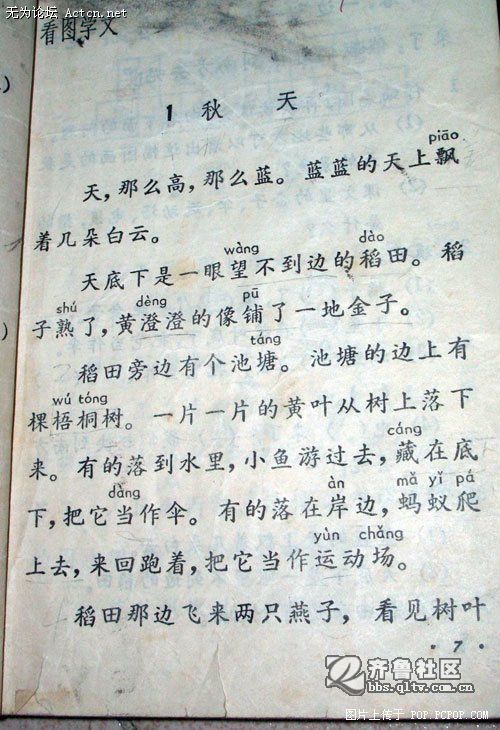 无为论坛 Actcn.net
看图学文
1 秋 天
piāo
天，那么高，那么蓝。蓝蓝的天上飘
着几朵白云。
wàng dào
天底下是一眼望不到边的稻田。稻
shú dèng pū
子熟了，黄澄澄的像铺了一地金子。
táng
稻田旁边有个池塘。池塘的边上有
wú tóng
棵梧桐树。一片一片的黄叶从树上落下
cáng
来。有的落到水里，小鱼游过去，藏在底
dàng àn mǎ yǐ pá
下，把它当作伞。有的落在岸边，蚂蚁爬
yùn chǎng
上去，来回跑着，把它当作运动场。
稻田那边飞来两只燕子，看见树叶
·7·
齐鲁社区
bbs.qltv.com.cn
图片上传于 POP.PCPOP.COM